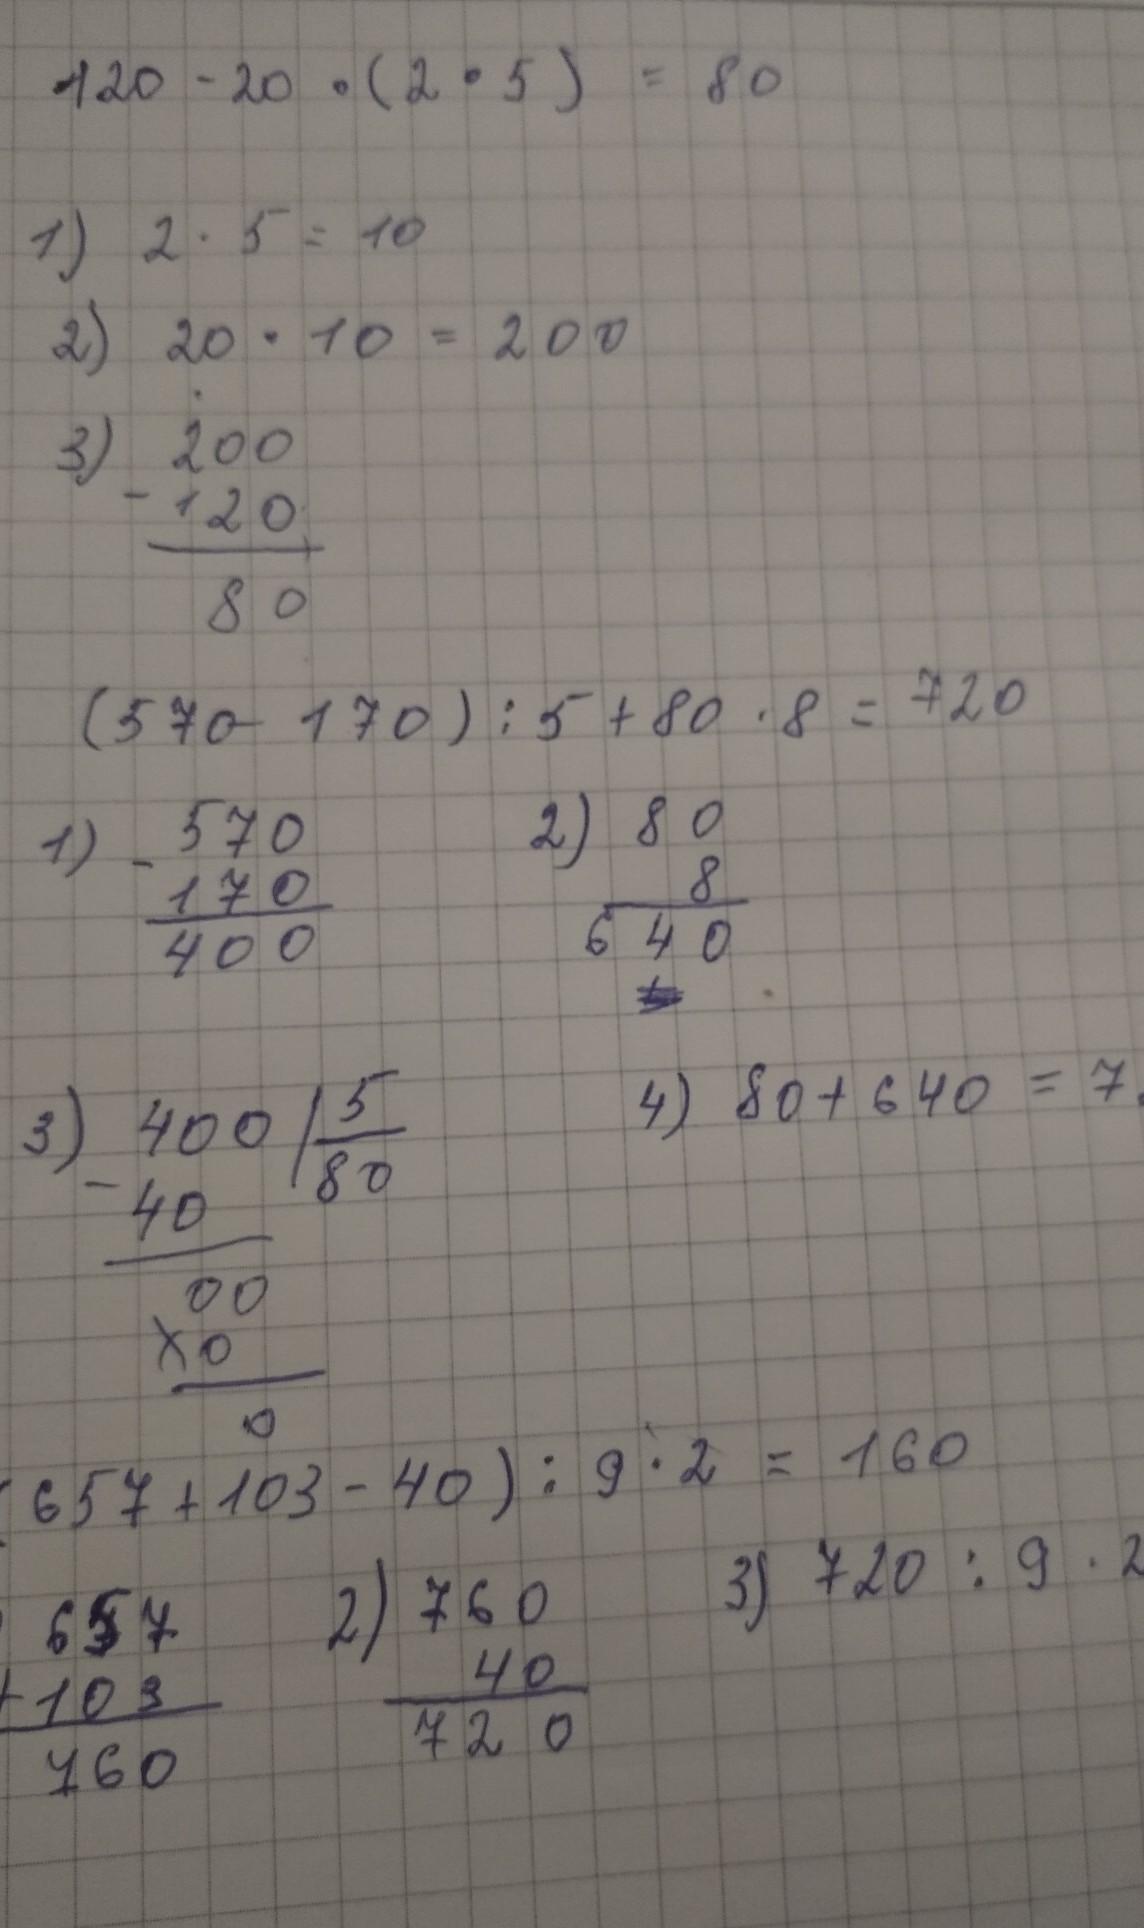 120 - 20 · (2 · 5) = 80
1) 2 · 5 = 10
2) 20 · 10 = 200
3) 200
- 120
80
(570 - 170) : 5 + 80 · 8 = 720
1) - 570
170
400
2) 80
8
640
3) 400 | 5
- 40 80
00
x0
0
4) 80 + 640 = 7
(657 + 103 - 40) : 9 · 2 = 160
657
+ 103
760
2) 760
40
720
3) 720 : 9 · 2